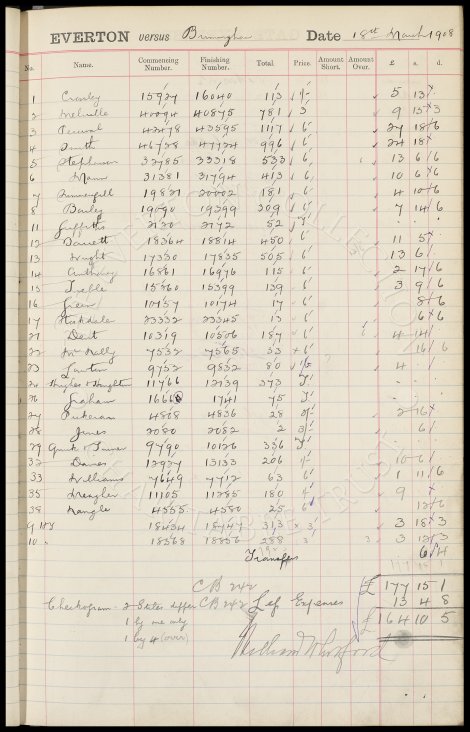 EVERTON versus Birmingham Date 18th March 1908
No. Name. Commencing Number. Finishing Number. Total. Price. Amount Short. Amount Over. £ s. d.
1 Crosby 15927 16040 113 5 13
2 Melville 40094 40875 781 3 9 15 3
3 Percival 1117 6 27 18 6
4 Smith 46728 47724 996 6 24 18
5 Stephenson 32785 33318 533 6 13 6 6
6 Mann 31381 31794 413 6 10 6 6
7 19821 20002 181 6 4 10 6
8 Bailey 19090 19399 309 6 7 14 6
11 Griffiths 2120 2172 52
12 Barrett 18364 18814 450 6 11 5
13 Wright 17330 17835 505 6 13 6
14 Anthony 16861 16976 115 6 2 17 6
15 Treble 15260 15399 139 6 3 9 6
16 Green 10157 10174 17 6 8 6
17 Stockdale 23332 23345 13 6 6 6
21 Dent 10319 10506 187 6 4 14
22 McNally 7532 7565 33 6 16 6
23 Lawton 9752 9832 80 4
Hughes & Hughton 11766 12139 373
26 Graham 1741 75
27 Pickeram 4808 4836 28 2 16
28 Jones 2080 2082 2 6
29 9790 10126 336
32 Davies 12927 13133 206 10 6
33 Williams 7649 7712 63 6 1 11 6
35 Meagher 11105 11285 180 9
38 Nangle 4555 4580 25 6 12 6
9 18434 18747 313 3 3 18 3
10 18568 18856 288 3 3 3 12 3
Transfers 6 4
CB 242 £ 177 15 1
Checkogram - 2 Stiles differ CB 242 Less Expenses 13 4 8
1 by me only £ 164 10 5
1 by 4 (over)